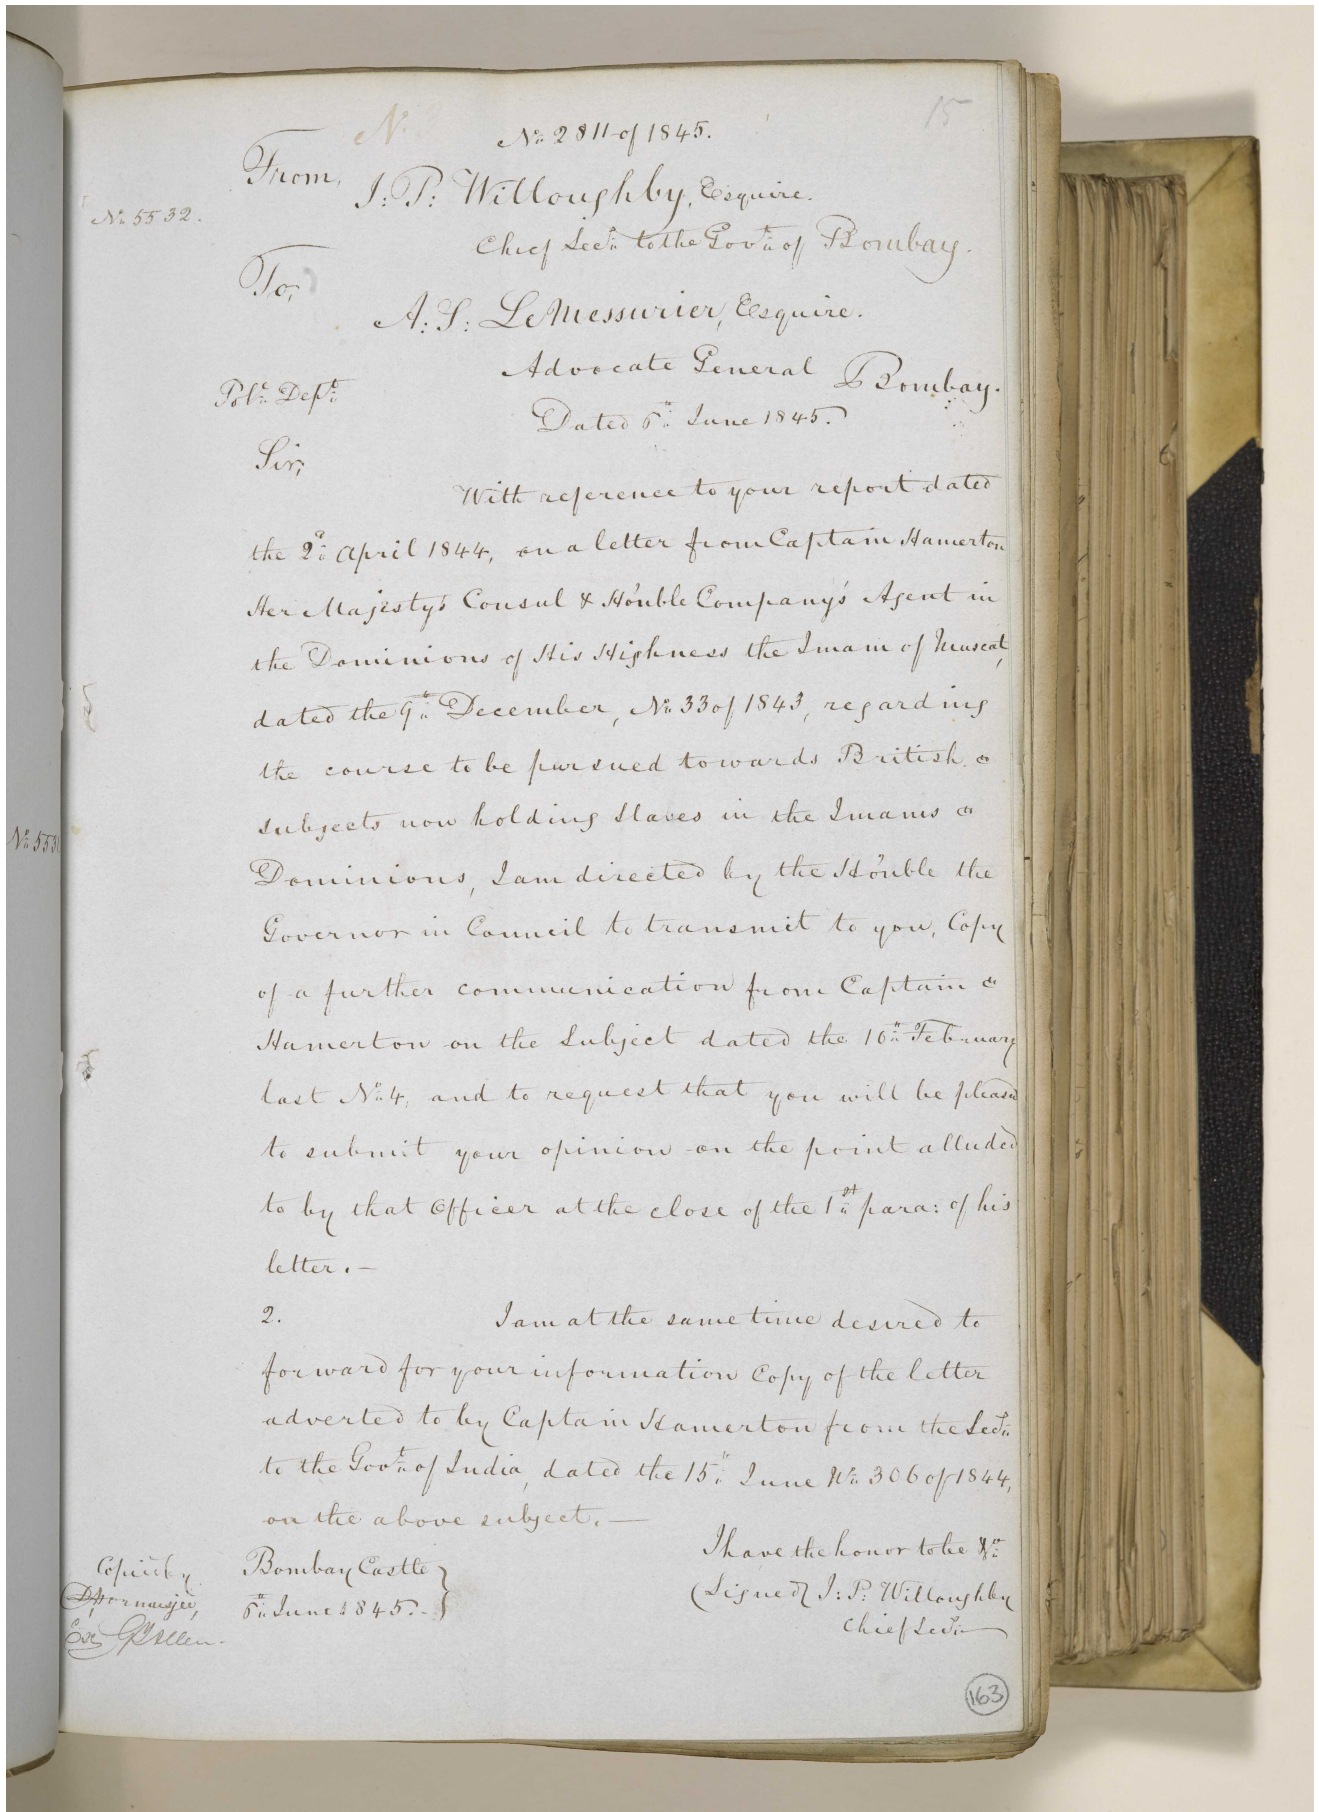 15
No. 2811 of 1845.
From,
J: P: Willoughby, Esquire.
No. 5532.
Chief Secy. to the Govt. of Bombay.
To,
A: S: LeMessurier, Esquire.
Advocate General Bombay.
Pol: Dept.
Dated 6th June 1845.
Sir,
With reference to your report dated
the 2d. April 1844, on a letter from Captain Hamerton
Her Majesty's Consul & Hon'ble Company's Agent in
the Dominions of His Highness the Imam of Muscat,
dated the 9th December, No. 33 of 1843, regarding
the course to be pursued towards British
subjects now holding Slaves in the Imams
No. 553
Dominions, I am directed by the Hon'ble the
Governor in Council to transmit to you, Copy
of a further communication from Captain
Hamerton on the Subject dated the 16th February
last No. 4, and to request that you will be pleased
to submit your opinion on the point alluded
to by that Officer at the close of the 1st para: of his
letter. –
2. I am at the same time desired to
forward for your information Copy of the letter
adverted to by Captain Hamerton from the Secy.
to the Govt. of India, dated the 15th June No. 306 of 1844,
on the above subject. —
I have the honor to be &c.
Copied by Bombay Castle
(Signed) J: P: Willoughby
6th June 1845. –
Chief Secy.
163